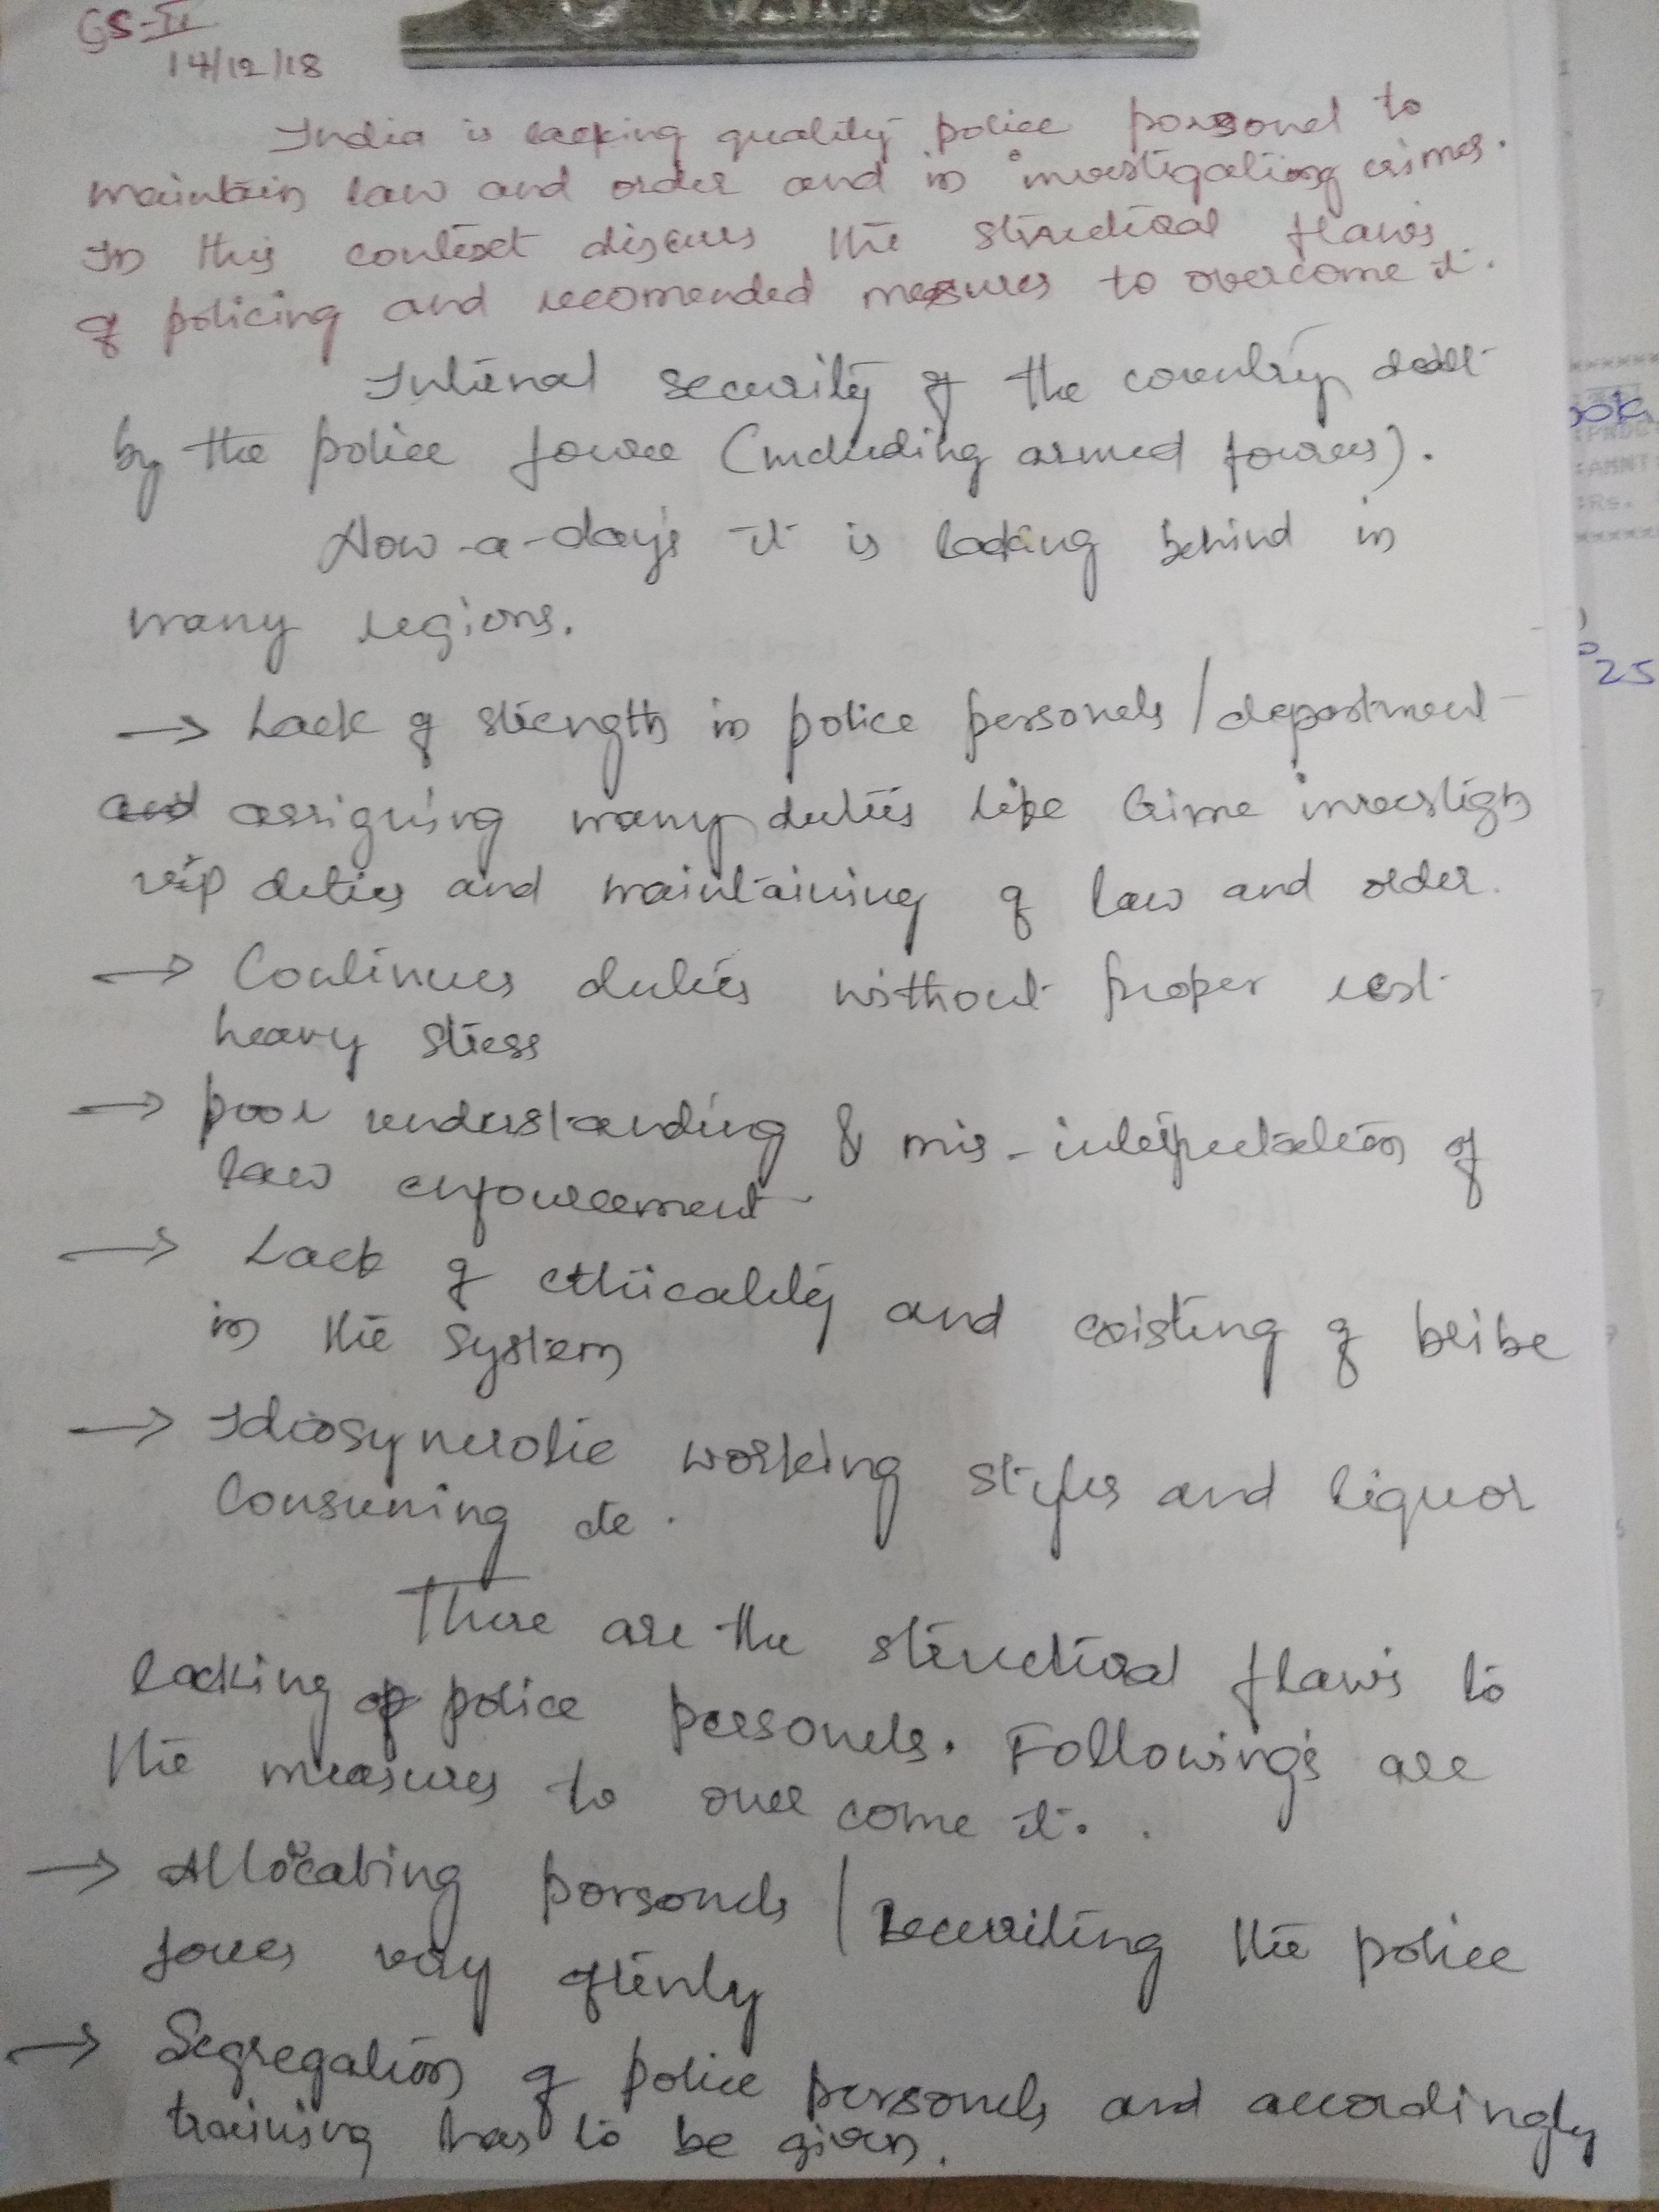 GS-II
14/12/18
India is lacking quality police personel to
maintain law and order and in investigationg crimes.
In this context discuss the structural flaws
of policing and recomended measures to overcome it.
Internal security of the country dealt
by the police fource (including armed fources).
Now-a-days it is lacking behind in
many regions.
→ Lack of strength in police personels/department
and assigning many duties like Crime investign
vip duties and maintaining of law and order.
→ Continues duties without proper rest
heavy stress
→ poor understanding & mis-interpretation of
law enfourcement
→ Lack of ethicality and existing of bribe
in the system
→ Idiosyncrotic working styles and liquor
Consuming etc.
These are the structural flaws to
lacking of police personels. Followings are
the measures to over come it.
→ Allocating personels / Recuriting the police
forces very oftenly
→ Segregation of police personels and accordingly
training has to be given.
25